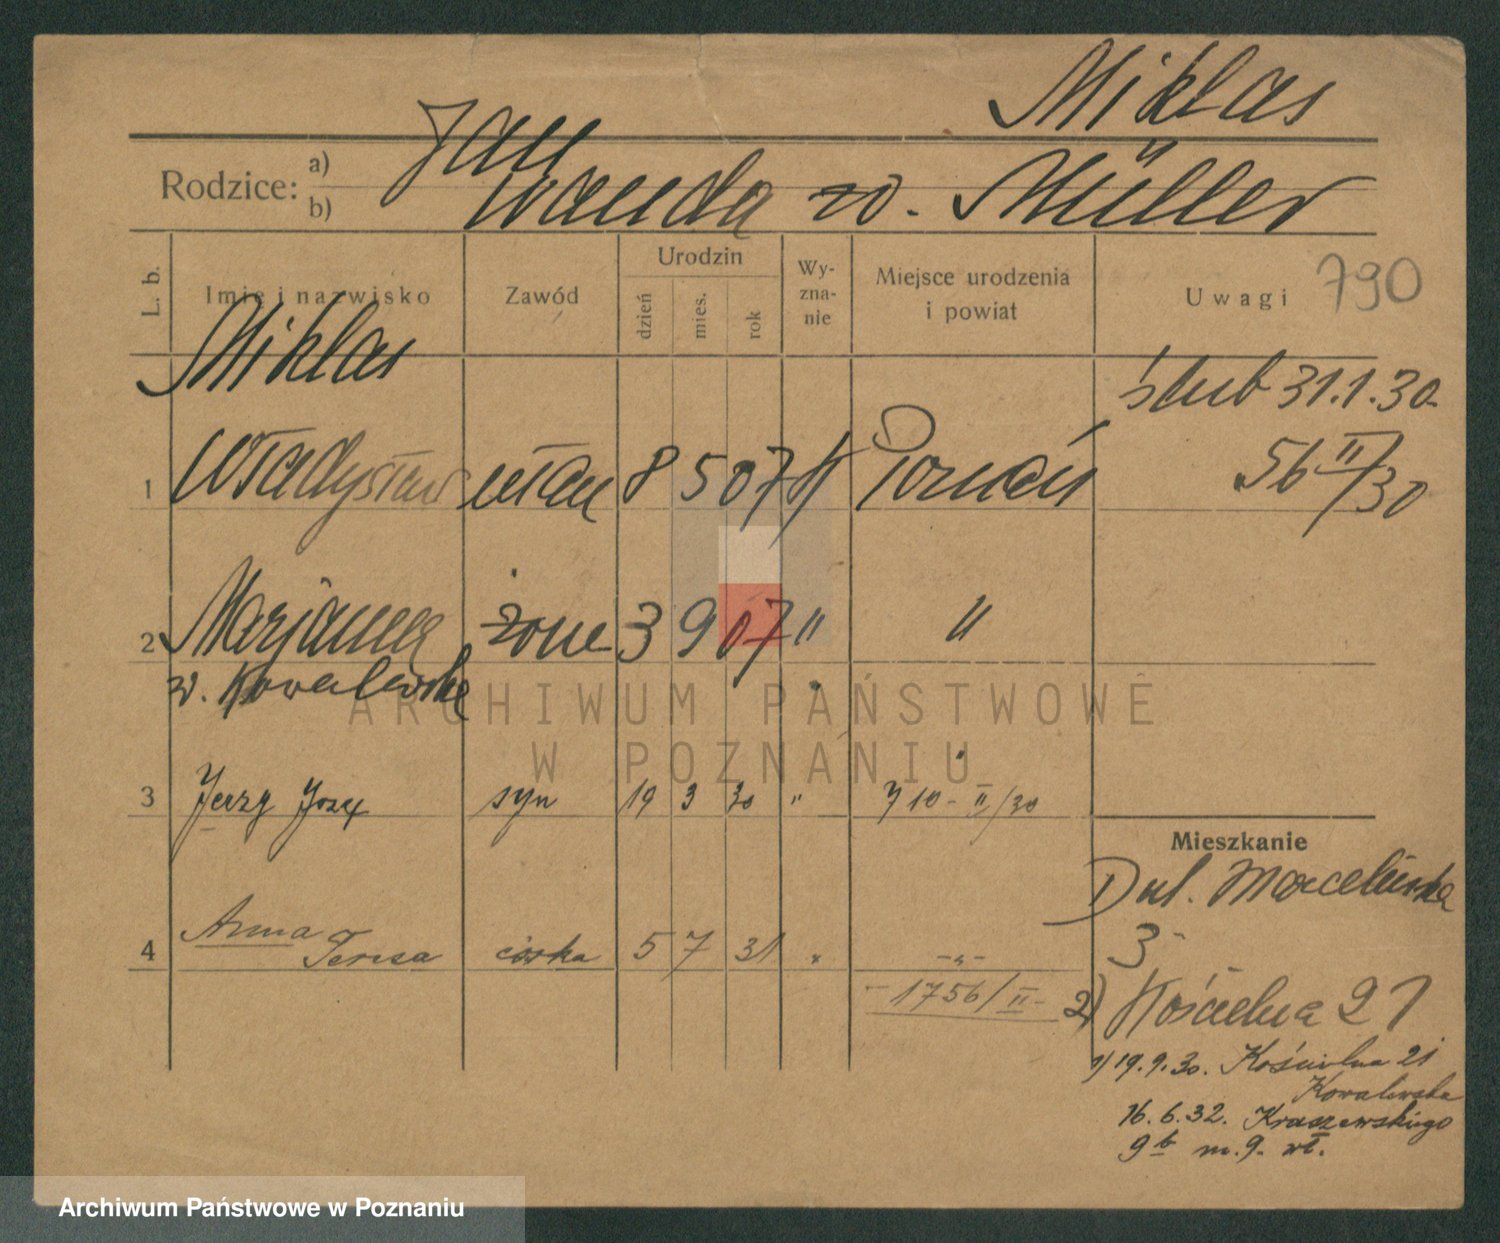 Miklas
Rodzice: a) Jan
b) Wanda zd. Müller
L. b. Imię i nazwisko Zawód Urodzin dzień mies. rok Wy-zna-nie Miejsce urodzenia i powiat Uwagi 790
Miklas ślub 31.1.30
1 Władysław ułan 8 5 07 Poznań 56 II/30
2 Marjanna żona 3 9 07 " "
z. Kowalewska
3 Jerzy Józef syn 19 3 30 " 710 - II/30
4 Anna Teresa córka 5 7 31 " - " -
- 1756/II -
Mieszkanie
1) ul. Marcelińska
3
2) Kościelna 21
1) 19.9.30. Kościelna 21
Kowalewska
16.6.32. Kraszewskiego
9b m. 9. wł.
ARCHIWUM PAŃSTWOWE
W POZNANIU
Archiwum Państwowe w Poznaniu